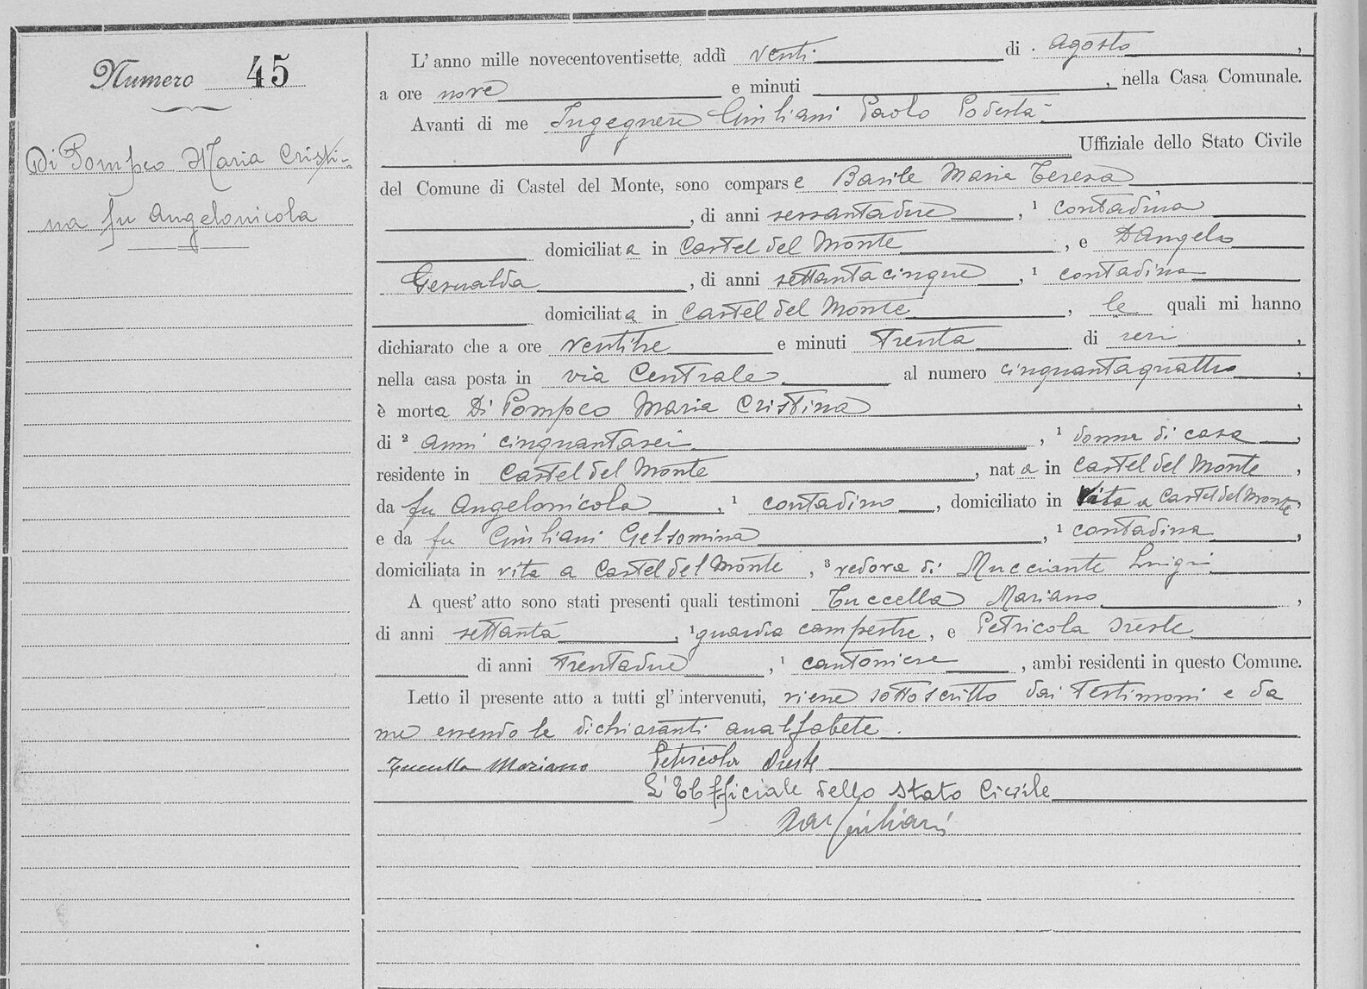 Numero 45
Di Pompeo Maria Cristi-
na fu Angelonicola
L'anno mille novecentoventisette, addì venti di Agosto,
a ore nove e minuti , nella Casa Comunale.
Avanti di me Ingegnere Giuliani Paolo Podestà
Uffiziale dello Stato Civile
del Comune di Castel del Monte, sono comparse Basile Maria Teresa
, di anni sessantadue, ¹ contadina
domiciliata in Castel del Monte, e D'Angelo
Gesualda, di anni settantacinque, ¹ contadina
domiciliata in Castel del Monte, le quali mi hanno
dichiarato che a ore ventitre e minuti trenta di ieri,
nella casa posta in via Centrale al numero cinquantaquattro,
è morta Di Pompeo Maria Cristina
di ² anni cinquantasei, ¹ donna di casa,
residente in Castel del Monte, nata in Castel del Monte,
da fu Angelonicola, ¹ contadino, domiciliato in vita a Castel del Monte
e da fu Giuliani Gelsomina, ¹ contadina,
domiciliata in vita a Castel del Monte, ³ vedova di Mucciante Luigi
A quest'atto sono stati presenti quali testimoni Tuccella Mariano,
di anni settanta, ¹ guardia campestre, e Petricola Oreste
di anni trentadue, ¹ cantoniere, ambi residenti in questo Comune.
Letto il presente atto a tutti gl'intervenuti, viene sottoscritto dai testimoni e da
me essendo le dichiaranti analfabete.
Tuccella Mariano Petricola Oreste
L'Ufficiale dello Stato Civile
Giuliani